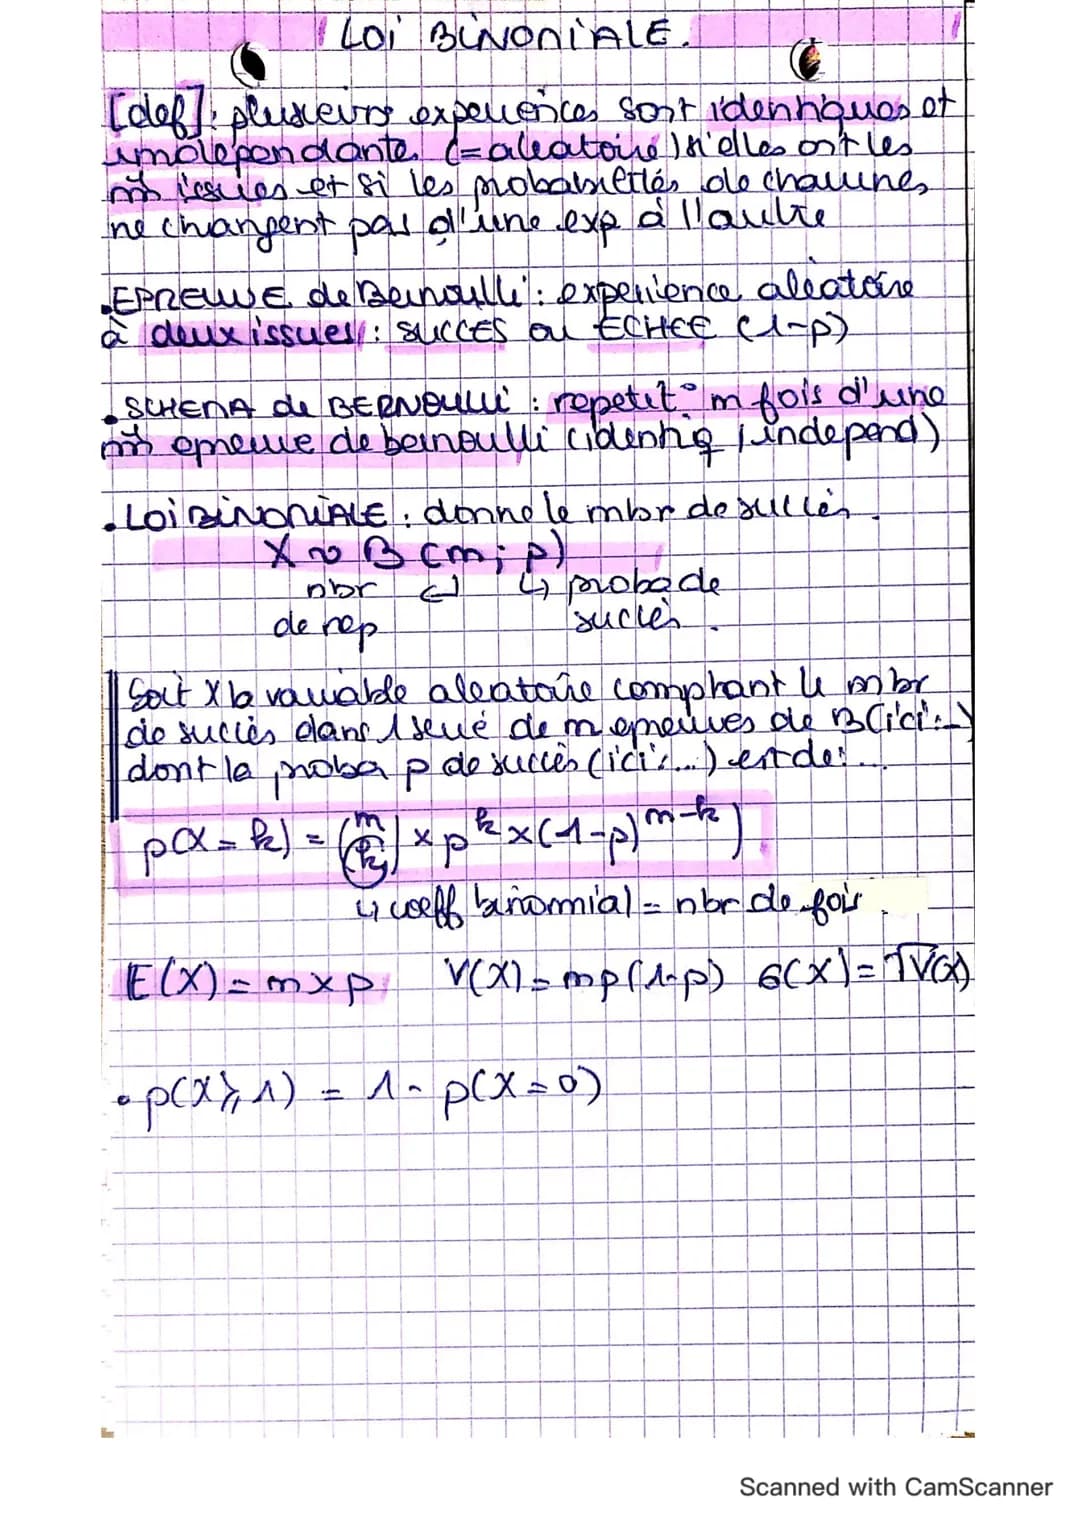 LOI BINOMIALE.
[def]: plusieurs experiences sont identiques et
independante (=aleatoire) si elles ont les
mm issues et si les probabilités de chacunes
ne changent pas d'une exp à l'autre
.EPREUVE de Bernoulli : experience aléatoire
à deux issues : SUCCES ou ECHEC (1-p)
.SCHEMA de BERNOULLI : repetit° n fois d'une
mm epreuve de bernoulli (identiq / independ)
.LOI BINOMIALE : donne le nbr de succès.
X ~ B (n ; p)
nbr ↵ ↳ proba de
de rep succès.
Soit X la variable aleatoire comptant le nbr
de succès dans 1 serie de n epreuves de B (ici:...)
dont la proba p de succès (ici:...) est de:...
p(X = k) = (n k) × p^k × (1-p)^n-k
↳ coeff binomial = nbr de fois
E(X) = n × p V(X) = np(1-p) σ(X) = √V(X)
• p(X ⩾ 1) = 1 - p(X = 0)
Scanned with CamScanner